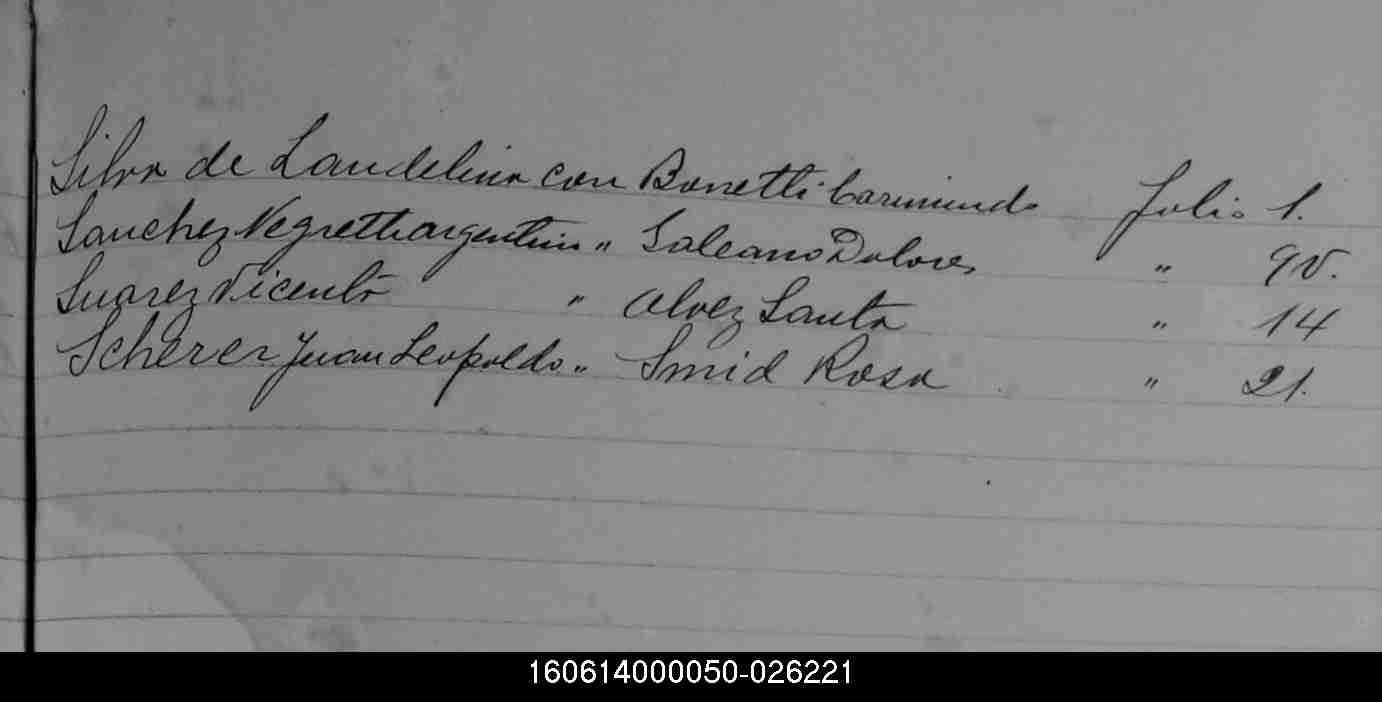 Silva de Laudelina con Bonetti Carmindo Folio 1.
Sanchez Negretti Argentino " Galeano Dolores " 9v.
Suarez Vicente " Alvez Santa " 14
Scherer Juan Leopoldo " Smid Rosa " 21.
160614000050-026221